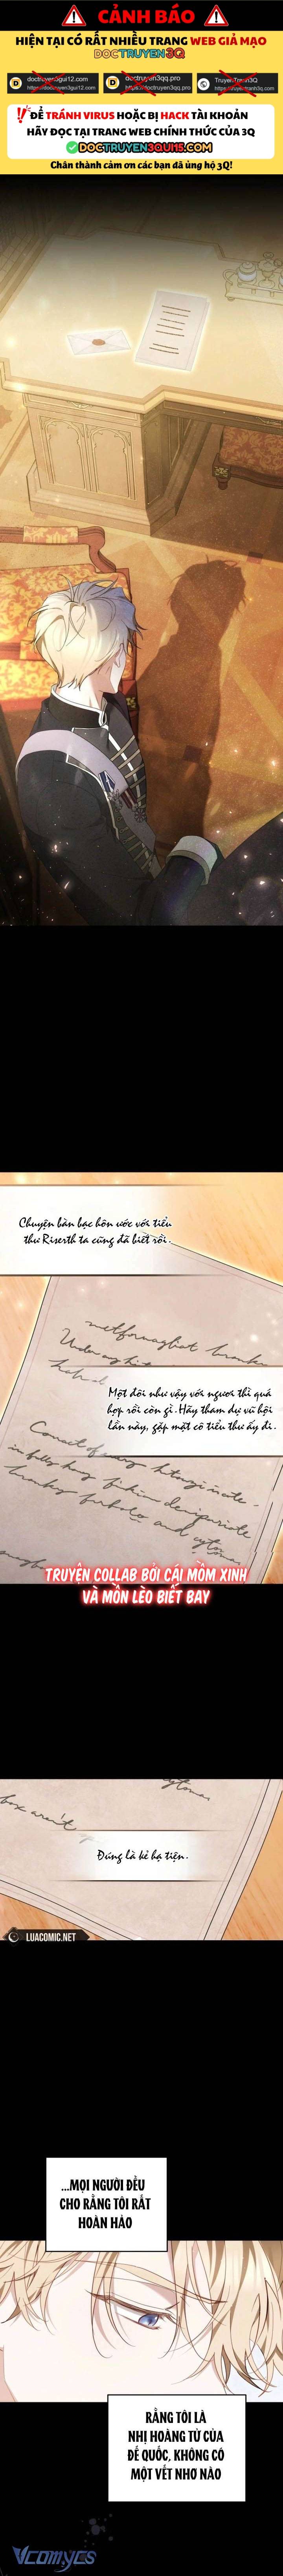 CẢNH BÁO
HIỆN TẠI CÓ RẤT NHIỀU TRANG WEB GIẢ MẠO
DOCTRUYEN3Q
doctruyen3gui12.com
https://doctruyen3gui12.com
doctruyen3qq.pro
https://doctruyen3qq.pro
TruyenTranh3Q
ĐỂ TRÁNH VIRUS HOẶC BỊ HACK TÀI KHOẢN
HÃY ĐỌC TẠI TRANG WEB CHÍNH THỨC CỦA 3Q
DOCTRUYEN3QUI15.COM
Chân thành cảm ơn các bạn đã ủng hộ 3Q!
Chuyện bàn bạc hôn ước với tiểu
thư Riserth ta cũng đã biết rồi.
Một đôi như vậy với ngươi thì quá
hợp rồi còn gì. Hãy tham dự vũ hội
lần này, gặp mặt cô tiểu thư ấy đi.
TRUYỆN COLLAB BỞI CÁI MỒM XINH
VÀ MỒN LÈO BIẾT BAY
box aren't
Đúng là kẻ hạ tiện.
LUACOMIC.NET
...MỌI NGƯỜI ĐỀU
CHO RẰNG TÔI RẤT
HOÀN HẢO
RẰNG TÔI LÀ
NHỊ HOÀNG TỬ CỦA
ĐẾ QUỐC, KHÔNG CÓ
MỘT VẾT NHƠ NÀO
Vcomycs